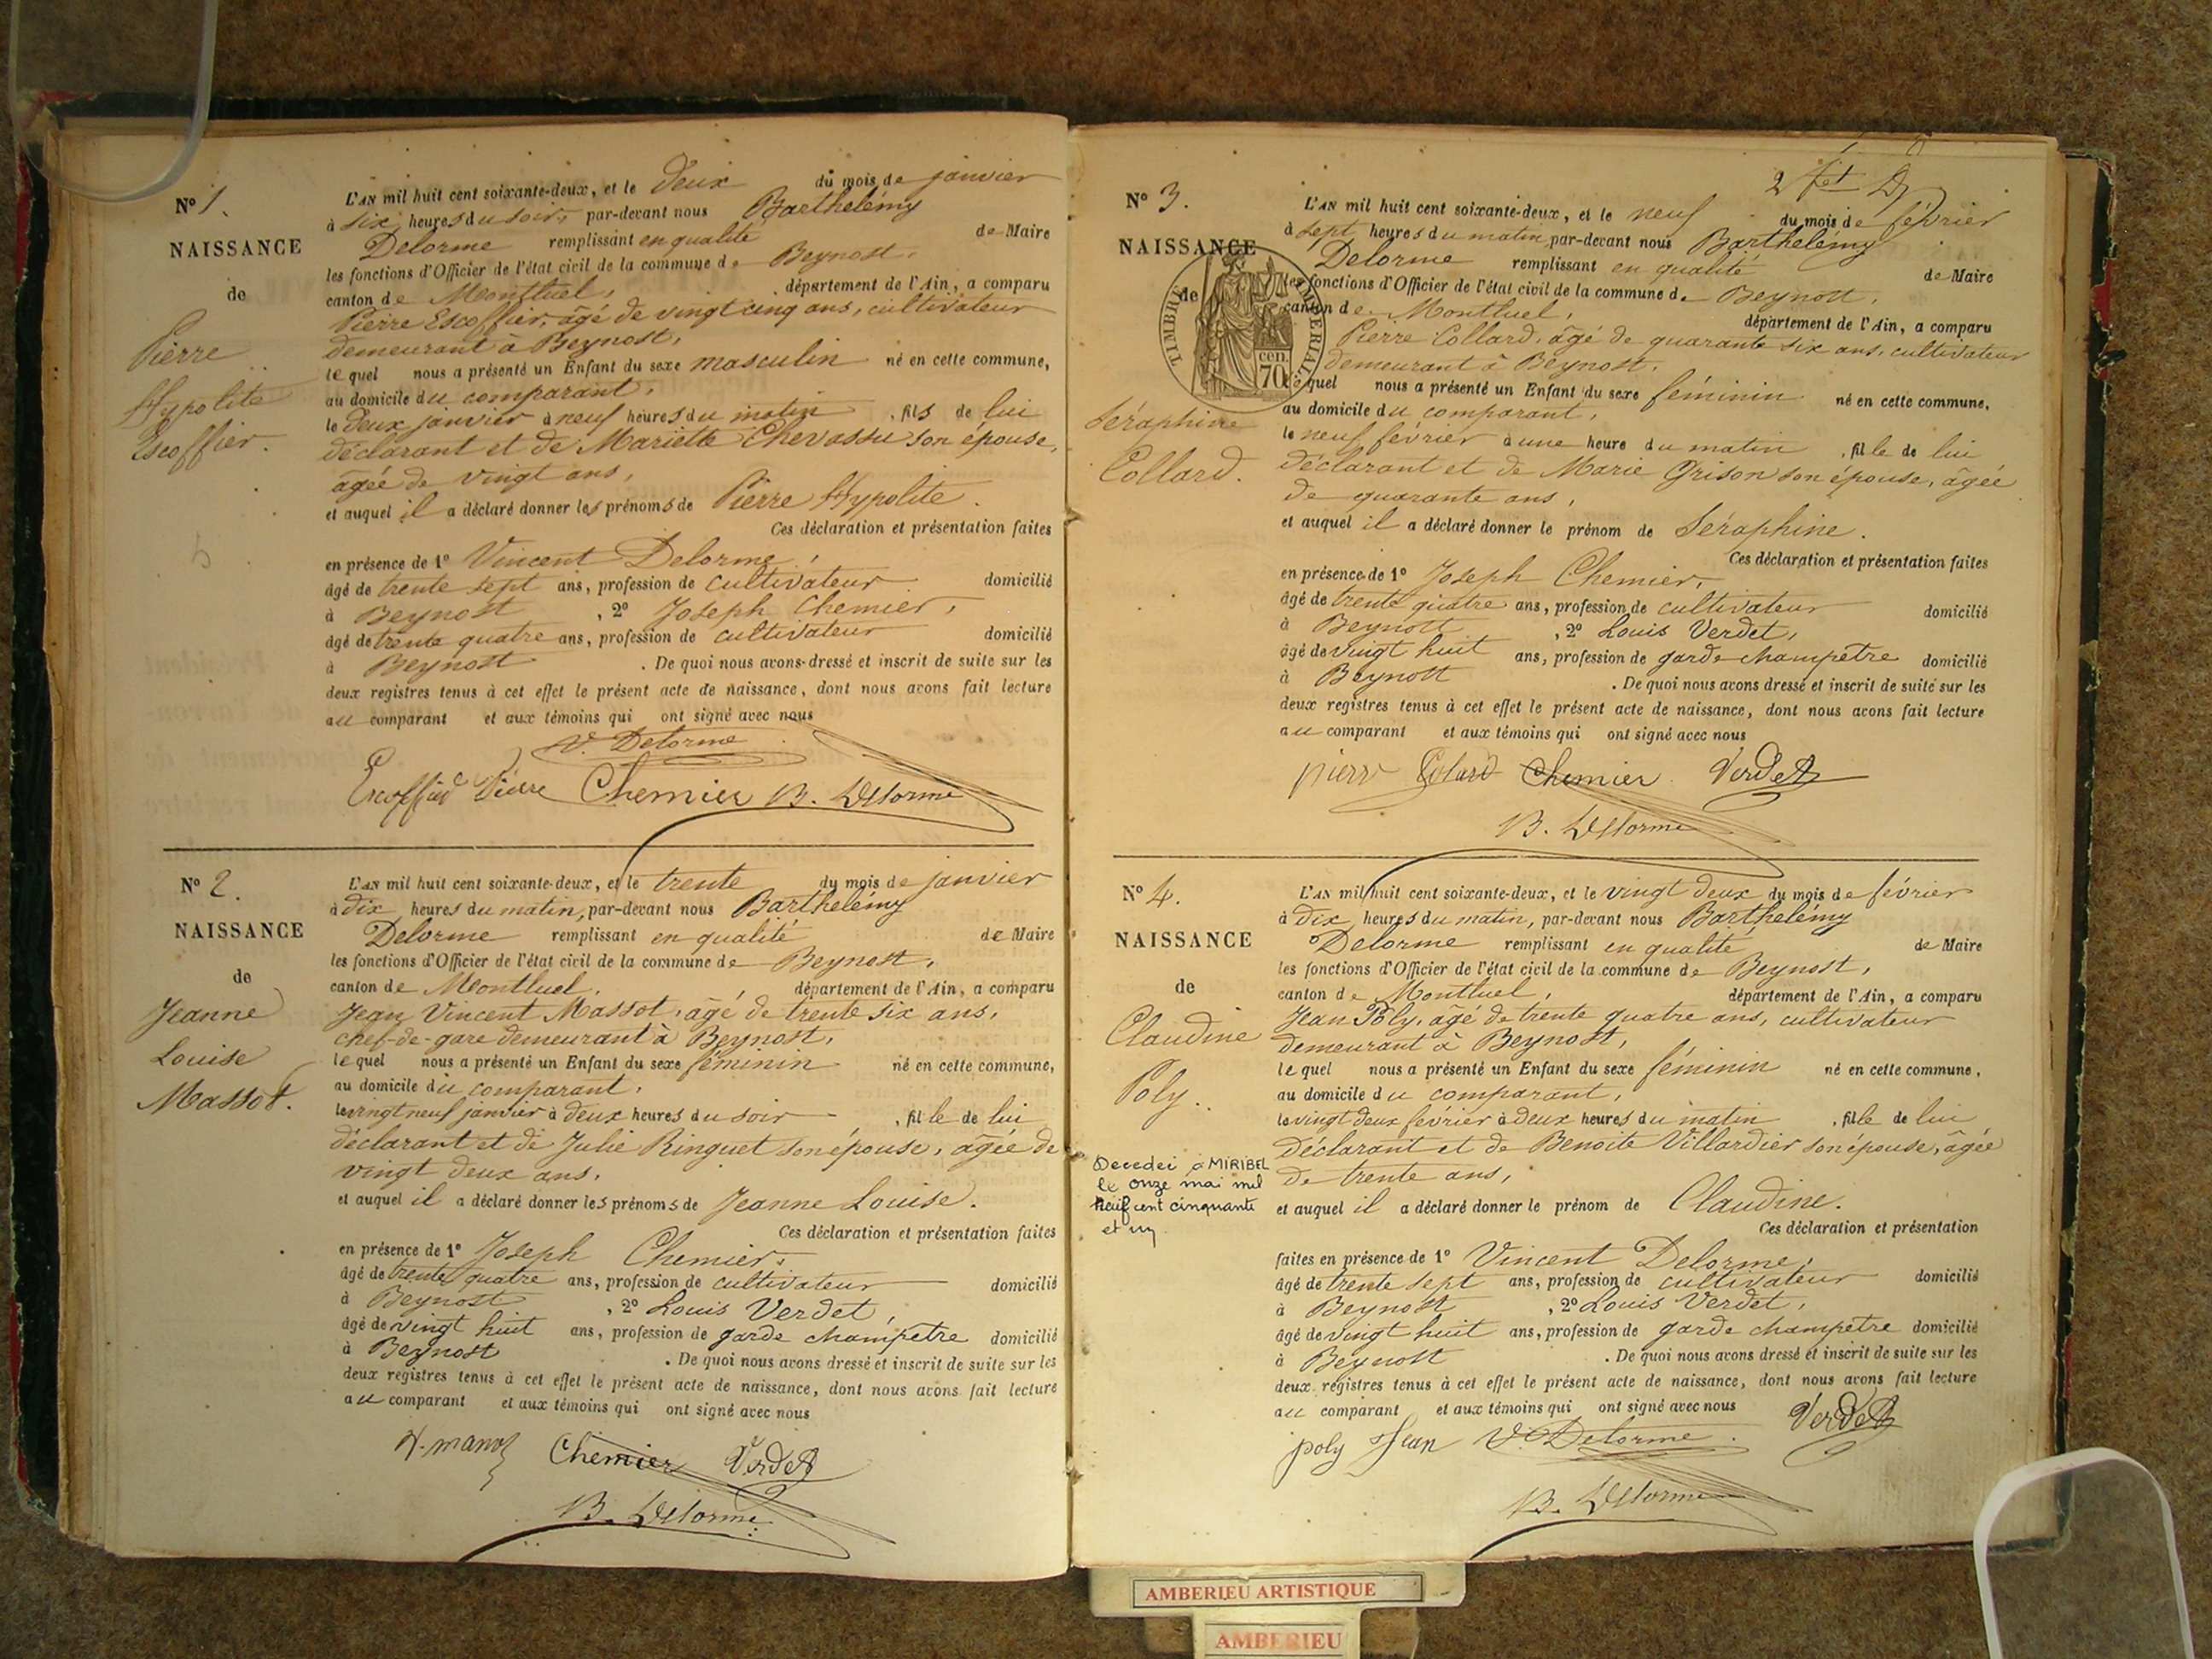 N° 1.
NAISSANCE
de
Pierre
Hypolite
Escoffier.
L'AN mil huit cent soixante-deux, et le Deux du mois de janvier
à six heures du soir, par-devant nous Barthelémy
Delorme remplissant en qualité de Maire
les fonctions d'Officier de l'état civil de la commune de Beynost,
canton de Montluel, département de l'Ain, a comparu
Pierre Escoffier, âgé de vingt cinq ans, cultivateur
demeurant à Beynost,
lequel nous a présenté un Enfant du sexe masculin né en cette commune,
au domicile du comparant,
le Deux janvier à neuf heures du matin, fils de lui
déclarant et de Mariette Chevassu son épouse,
âgée de vingt ans,
et auquel il a déclaré donner les prénoms de Pierre Hypolite.
Ces déclaration et présentation faites
en présence de 1° Vincent Delorme,
âgé de trente sept ans, profession de cultivateur domicilié
à Beynost, 2° Joseph Chemier,
âgé de trente quatre ans, profession de cultivateur domicilié
à Beynost. De quoi nous avons dressé et inscrit de suite sur les
deux registres tenus à cet effet le présent acte de naissance, dont nous avons fait lecture
au comparant et aux témoins qui ont signé avec nous
V. Delorme
Escoffier Pierre Chemier B. Delorme
N° 2.
NAISSANCE
de
Jeanne
Louise
Massot.
L'AN mil huit cent soixante-deux, et le trente du mois de janvier
à dix heures du matin, par-devant nous Barthelémy
Delorme remplissant en qualité de Maire
les fonctions d'Officier de l'état civil de la commune de Beynost,
canton de Montluel, département de l'Ain, a comparu
Jean Vincent Massot, âgé de trente six ans,
chef-de-gare demeurant à Beynost,
lequel nous a présenté un Enfant du sexe féminin né en cette commune,
au domicile du comparant,
le vingt neuf janvier à deux heures du soir, fille de lui
déclarant et de Julie Ringuet son épouse, âgée de
vingt deux ans,
et auquel il a déclaré donner les prénoms de Jeanne Louise.
Ces déclaration et présentation faites
en présence de 1° Joseph Chemier,
âgé de trente quatre ans, profession de cultivateur domicilié
à Beynost, 2° Louis Verdet,
âgé de vingt huit ans, profession de garde champêtre domicilié
à Beynost. De quoi nous avons dressé et inscrit de suite sur les
deux registres tenus à cet effet le présent acte de naissance, dont nous avons fait lecture
au comparant et aux témoins qui ont signé avec nous
Chemier Verdet
B. Delorme
N° 3.
NAISSANCE
de
TIMBRE IMPERIAL
cen. 70
Séraphine
Collard.
L'AN mil huit cent soixante-deux, et le neuf du mois de février
à sept heures du matin, par-devant nous Barthelémy
Delorme remplissant en qualité de Maire
les fonctions d'Officier de l'état civil de la commune de Beynost,
canton de Montluel, département de l'Ain, a comparu
Pierre Collard, âgé de quarante six ans, cultivateur
demeurant à Beynost,
lequel nous a présenté un Enfant du sexe féminin né en cette commune,
au domicile du comparant,
le neuf février à une heure du matin, fille de lui
déclarant et de Marie Grison son épouse, âgée
de quarante ans,
et auquel il a déclaré donner le prénom de Séraphine.
Ces déclaration et présentation faites
en présence de 1° Joseph Chemier,
âgé de trente quatre ans, profession de cultivateur domicilié
à Beynost, 2° Louis Verdet,
âgé de vingt huit ans, profession de garde champêtre domicilié
à Beynost. De quoi nous avons dressé et inscrit de suite sur les
deux registres tenus à cet effet le présent acte de naissance, dont nous avons fait lecture
au comparant et aux témoins qui ont signé avec nous
pierr Colard Chemier Verdet
B. Delorme
N° 4.
NAISSANCE
de
Claudine
Poly.
Decedei a MIRIBEL
le onze mai mil
neuf cent cinquante
et un
L'AN mil huit cent soixante-deux, et le vingt deux du mois de février
à Dix heures du matin, par-devant nous Barthelémy
Delorme remplissant en qualité de Maire
les fonctions d'Officier de l'état civil de la commune de Beynost,
canton de Montluel, département de l'Ain, a comparu
Jean Poly, âgé de trente quatre ans, cultivateur
demeurant à Beynost,
lequel nous a présenté un Enfant du sexe féminin né en cette commune,
au domicile du comparant,
le vingt deux février à deux heures du matin, fille de lui
Déclarant et de Benoite Villardier son épouse, âgée
de trente ans,
et auquel il a déclaré donner le prénom de Claudine.
Ces déclaration et présentation
faites en présence de 1° Vincent Delorme,
âgé de trente sept ans, profession de cultivateur domicilié
à Beynost, 2° Louis Verdet,
âgé de vingt huit ans, profession de garde champêtre domicilié
à Beynost. De quoi nous avons dressé et inscrit de suite sur les
deux registres tenus à cet effet le présent acte de naissance, dont nous avons fait lecture
au comparant et aux témoins qui ont signé avec nous
poly Jean V. Delorme Verdet
B. Delorme
AMBERIEU ARTISTIQUE
AMBERIEU